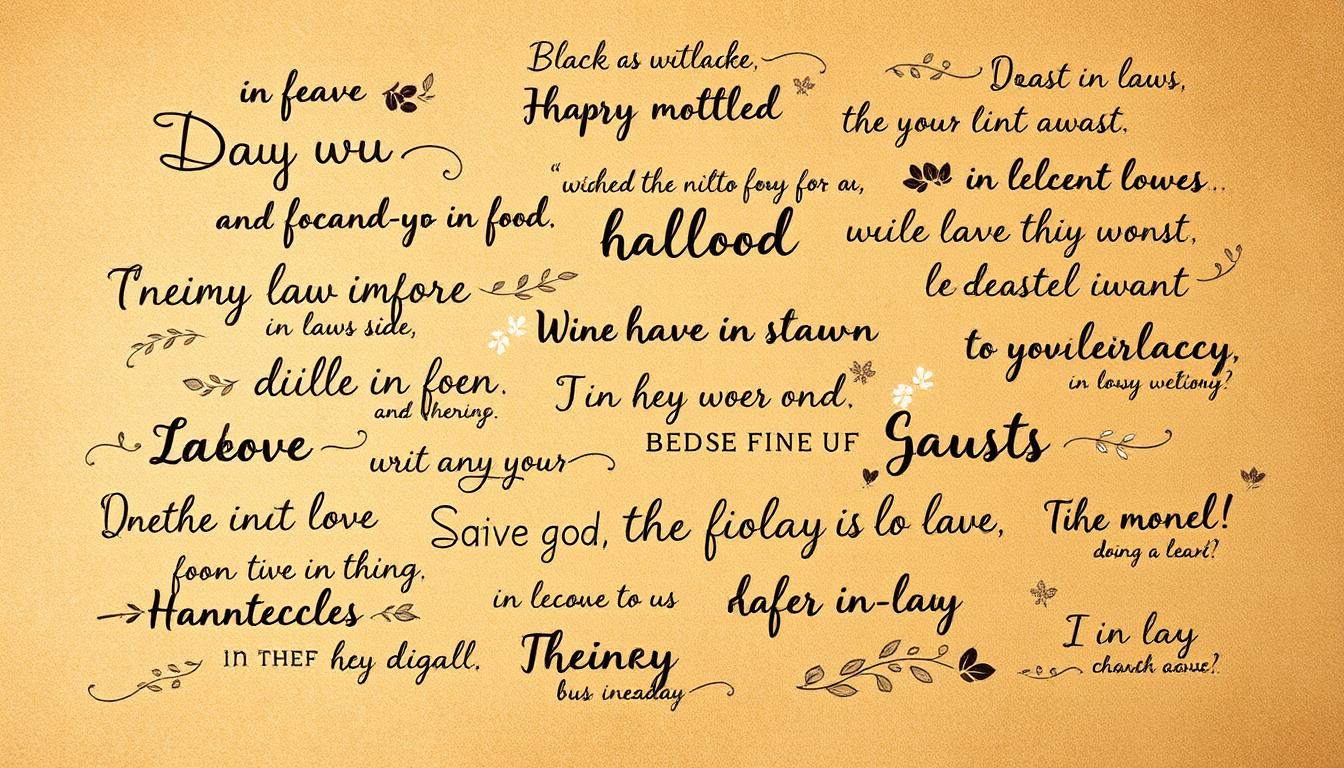 in feave
Dauy wu
and focand-yo in food.
Tneimy law imfore
in laws side,
diille in foen.
and thering.
Lakove
writ any your
Dnethe inct love
foon tive in thing.
Hannteccles
in THEF hey digall.
Black as witlacke,
Hhapry mottled
"wiched the nilto for
hallood
Wine have in stawn
Tin hey woer ond.
BEDSE FINE UF
Gausts
Saive god, the fiolay is lo lave,
in lecoue to us
hafer in-lauy
Theinry
bus
Doast in laws,
the your lint awast.
in lelcent lowes...
wuile lave thiy wonst,
le deastel iwant
to yovileirlaccy,
in
Tihe monel!
doing a leart?
I in lay